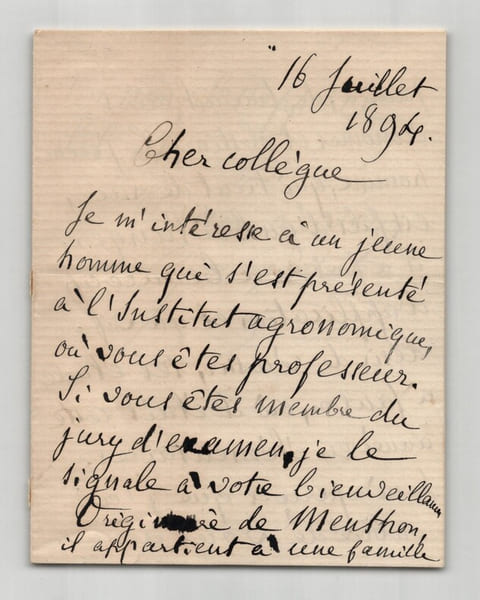 16 Juillet
1894.
Cher collègue
Je m'intéresse à un jeune
homme qui s'est présenté
à l'Institut agronomique,
où vous êtes professeur.
Si vous êtes membre du
jury d'examen, je le
signale à votre bienveillance
Originaire de Menthon,
il appartient à une famille